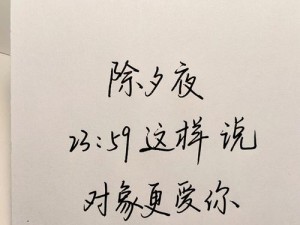 除夕夜
23:59这样说
对象更爱你